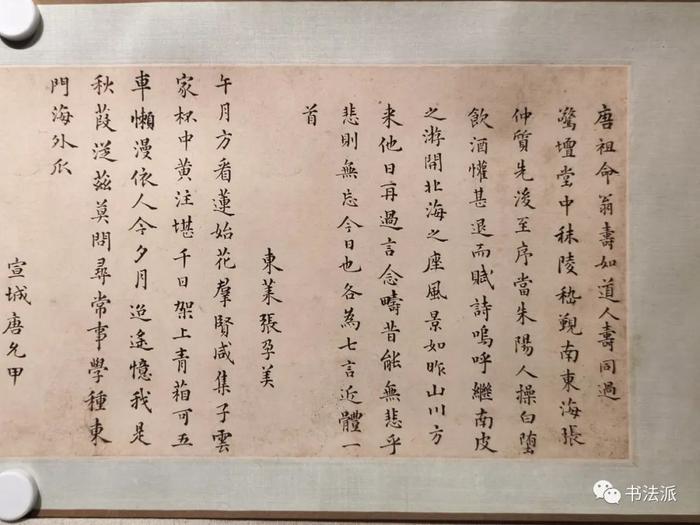 唐祖命翁壽如道人壽同過
鷲壇堂中秣陵嵇覲南東海張
仲質先後至序當朱陽人操白墮
飲酒懽甚退而賦詩嗚呼繼南皮
之游開北海之座風景如昨山川方
来他日再過言念疇昔能無悲乎
悲則無忘今日也各為七言近體一
首
東莱張孕美
午月方看蓮始花羣賢咸集子雲
家杯中黄注堪千日架上青箱可五
車懶漫依人今夕月迢遥憶我是
秋葭從兹莫問尋常事學種東
門海外瓜
宣城唐允甲
书法派